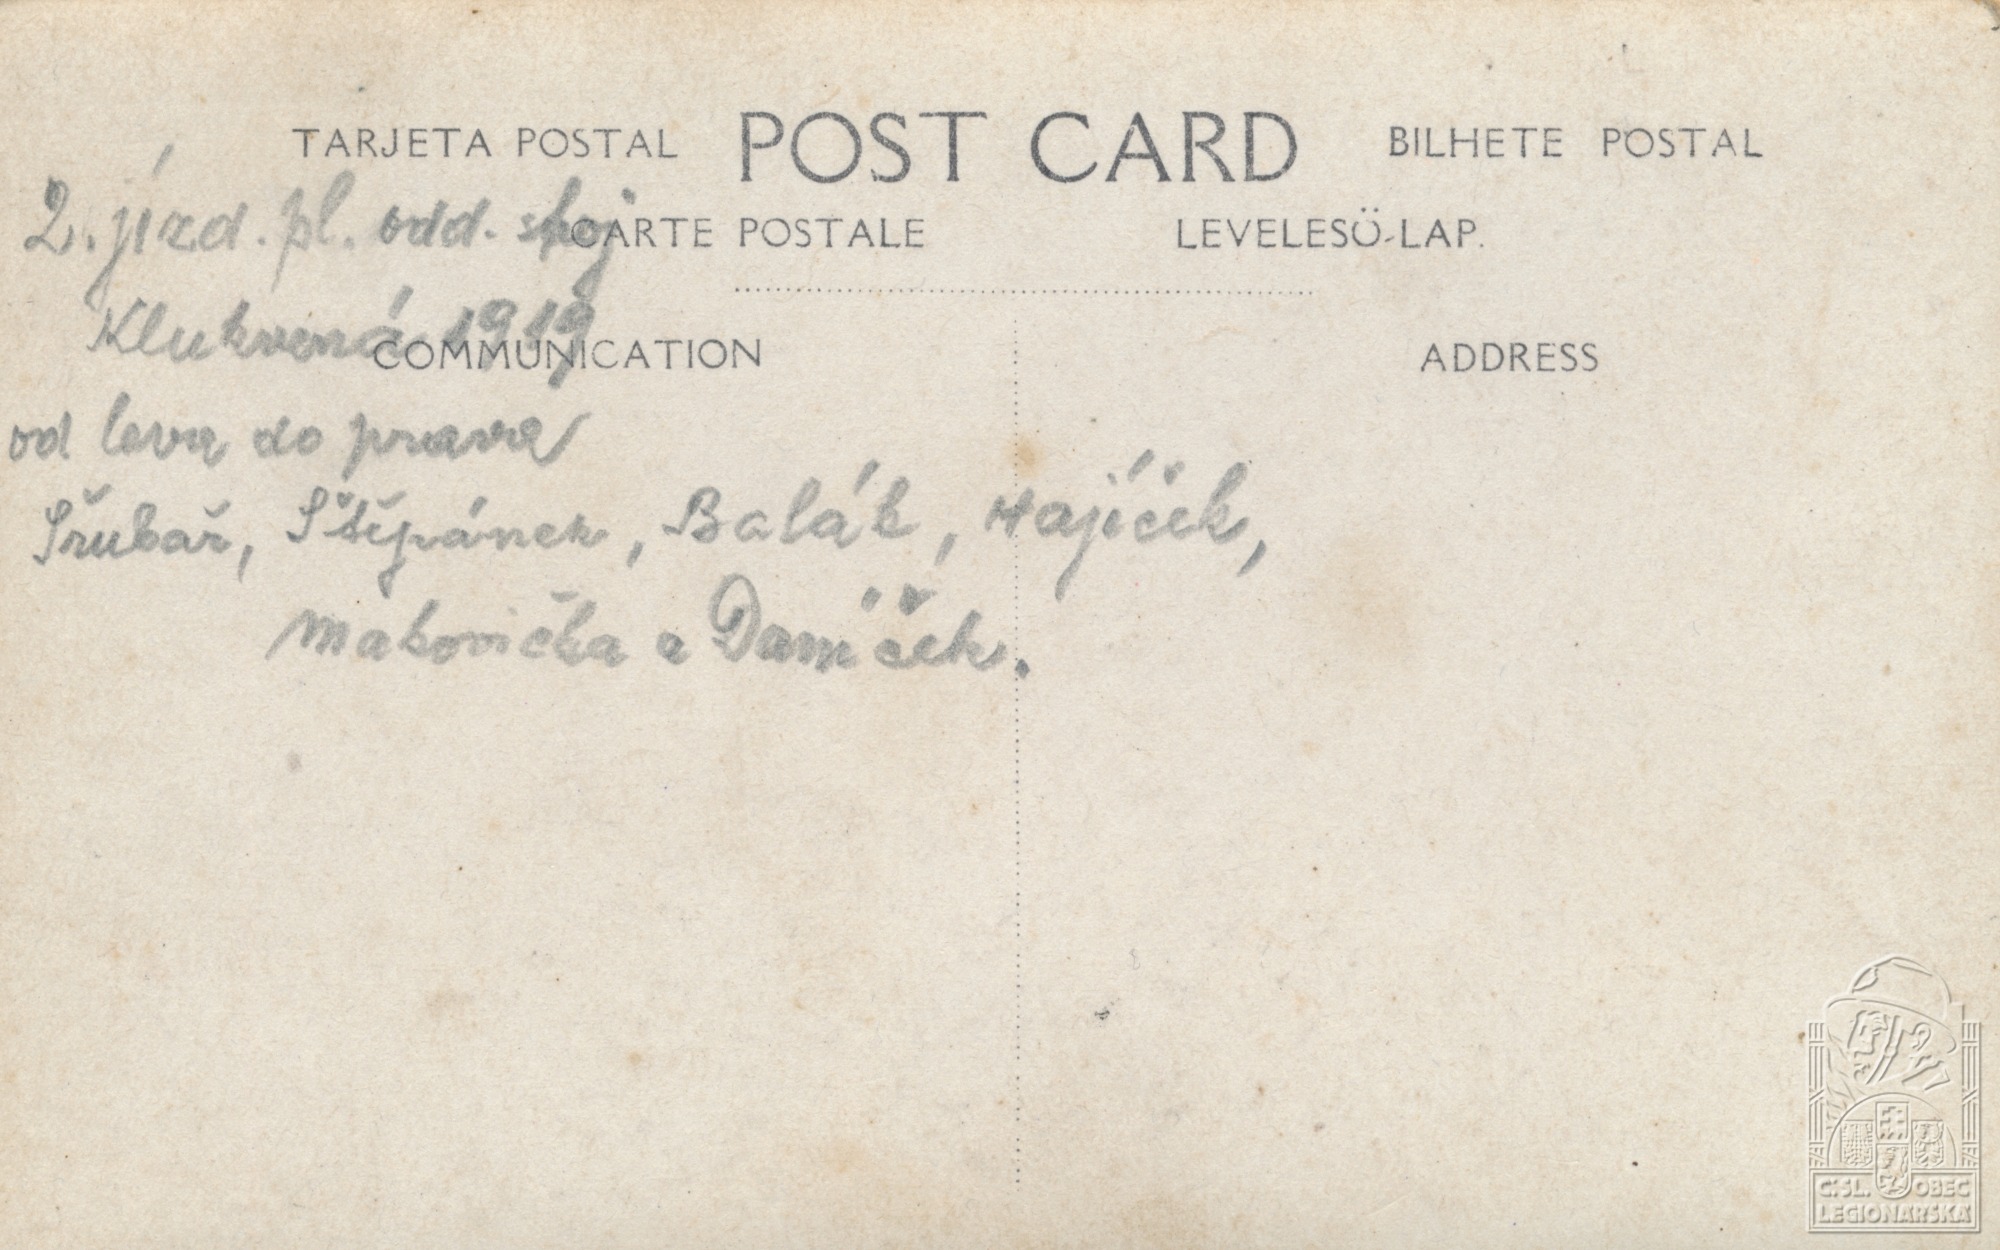 TARJETA POSTAL POST CARD BILHETE POSTAL
2. jízd. pl. odd. spoj
CARTE POSTALE LEVELESÖ-LAP.
Klukvená 1919
COMMUNICATION ADDRESS
od leva do prava
Šrubař, Štěpánek, Balák, Hajíček,
Makovička a Daníček.
Č:SL. OBEC
LEGIONÁŘSKÁ